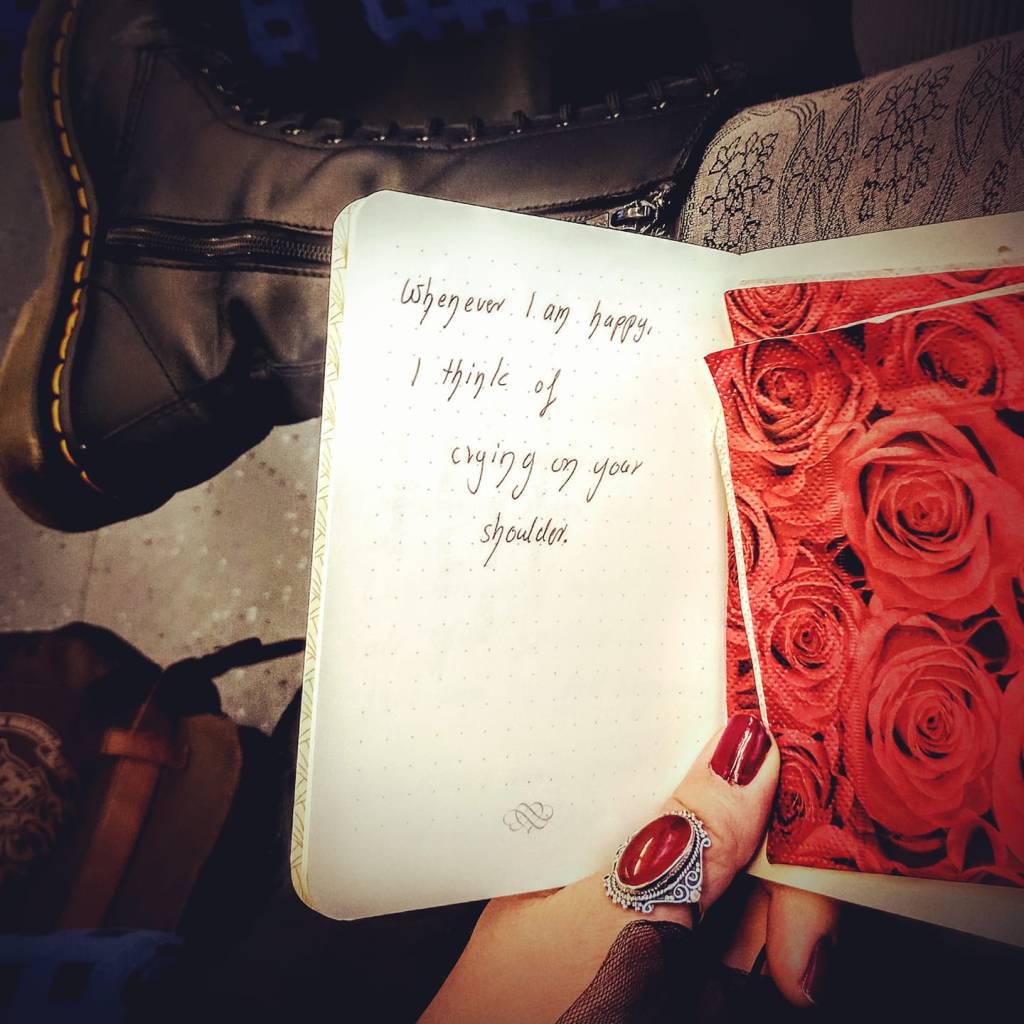 Whenever I am happy,
I think of
crying on your
shoulder.